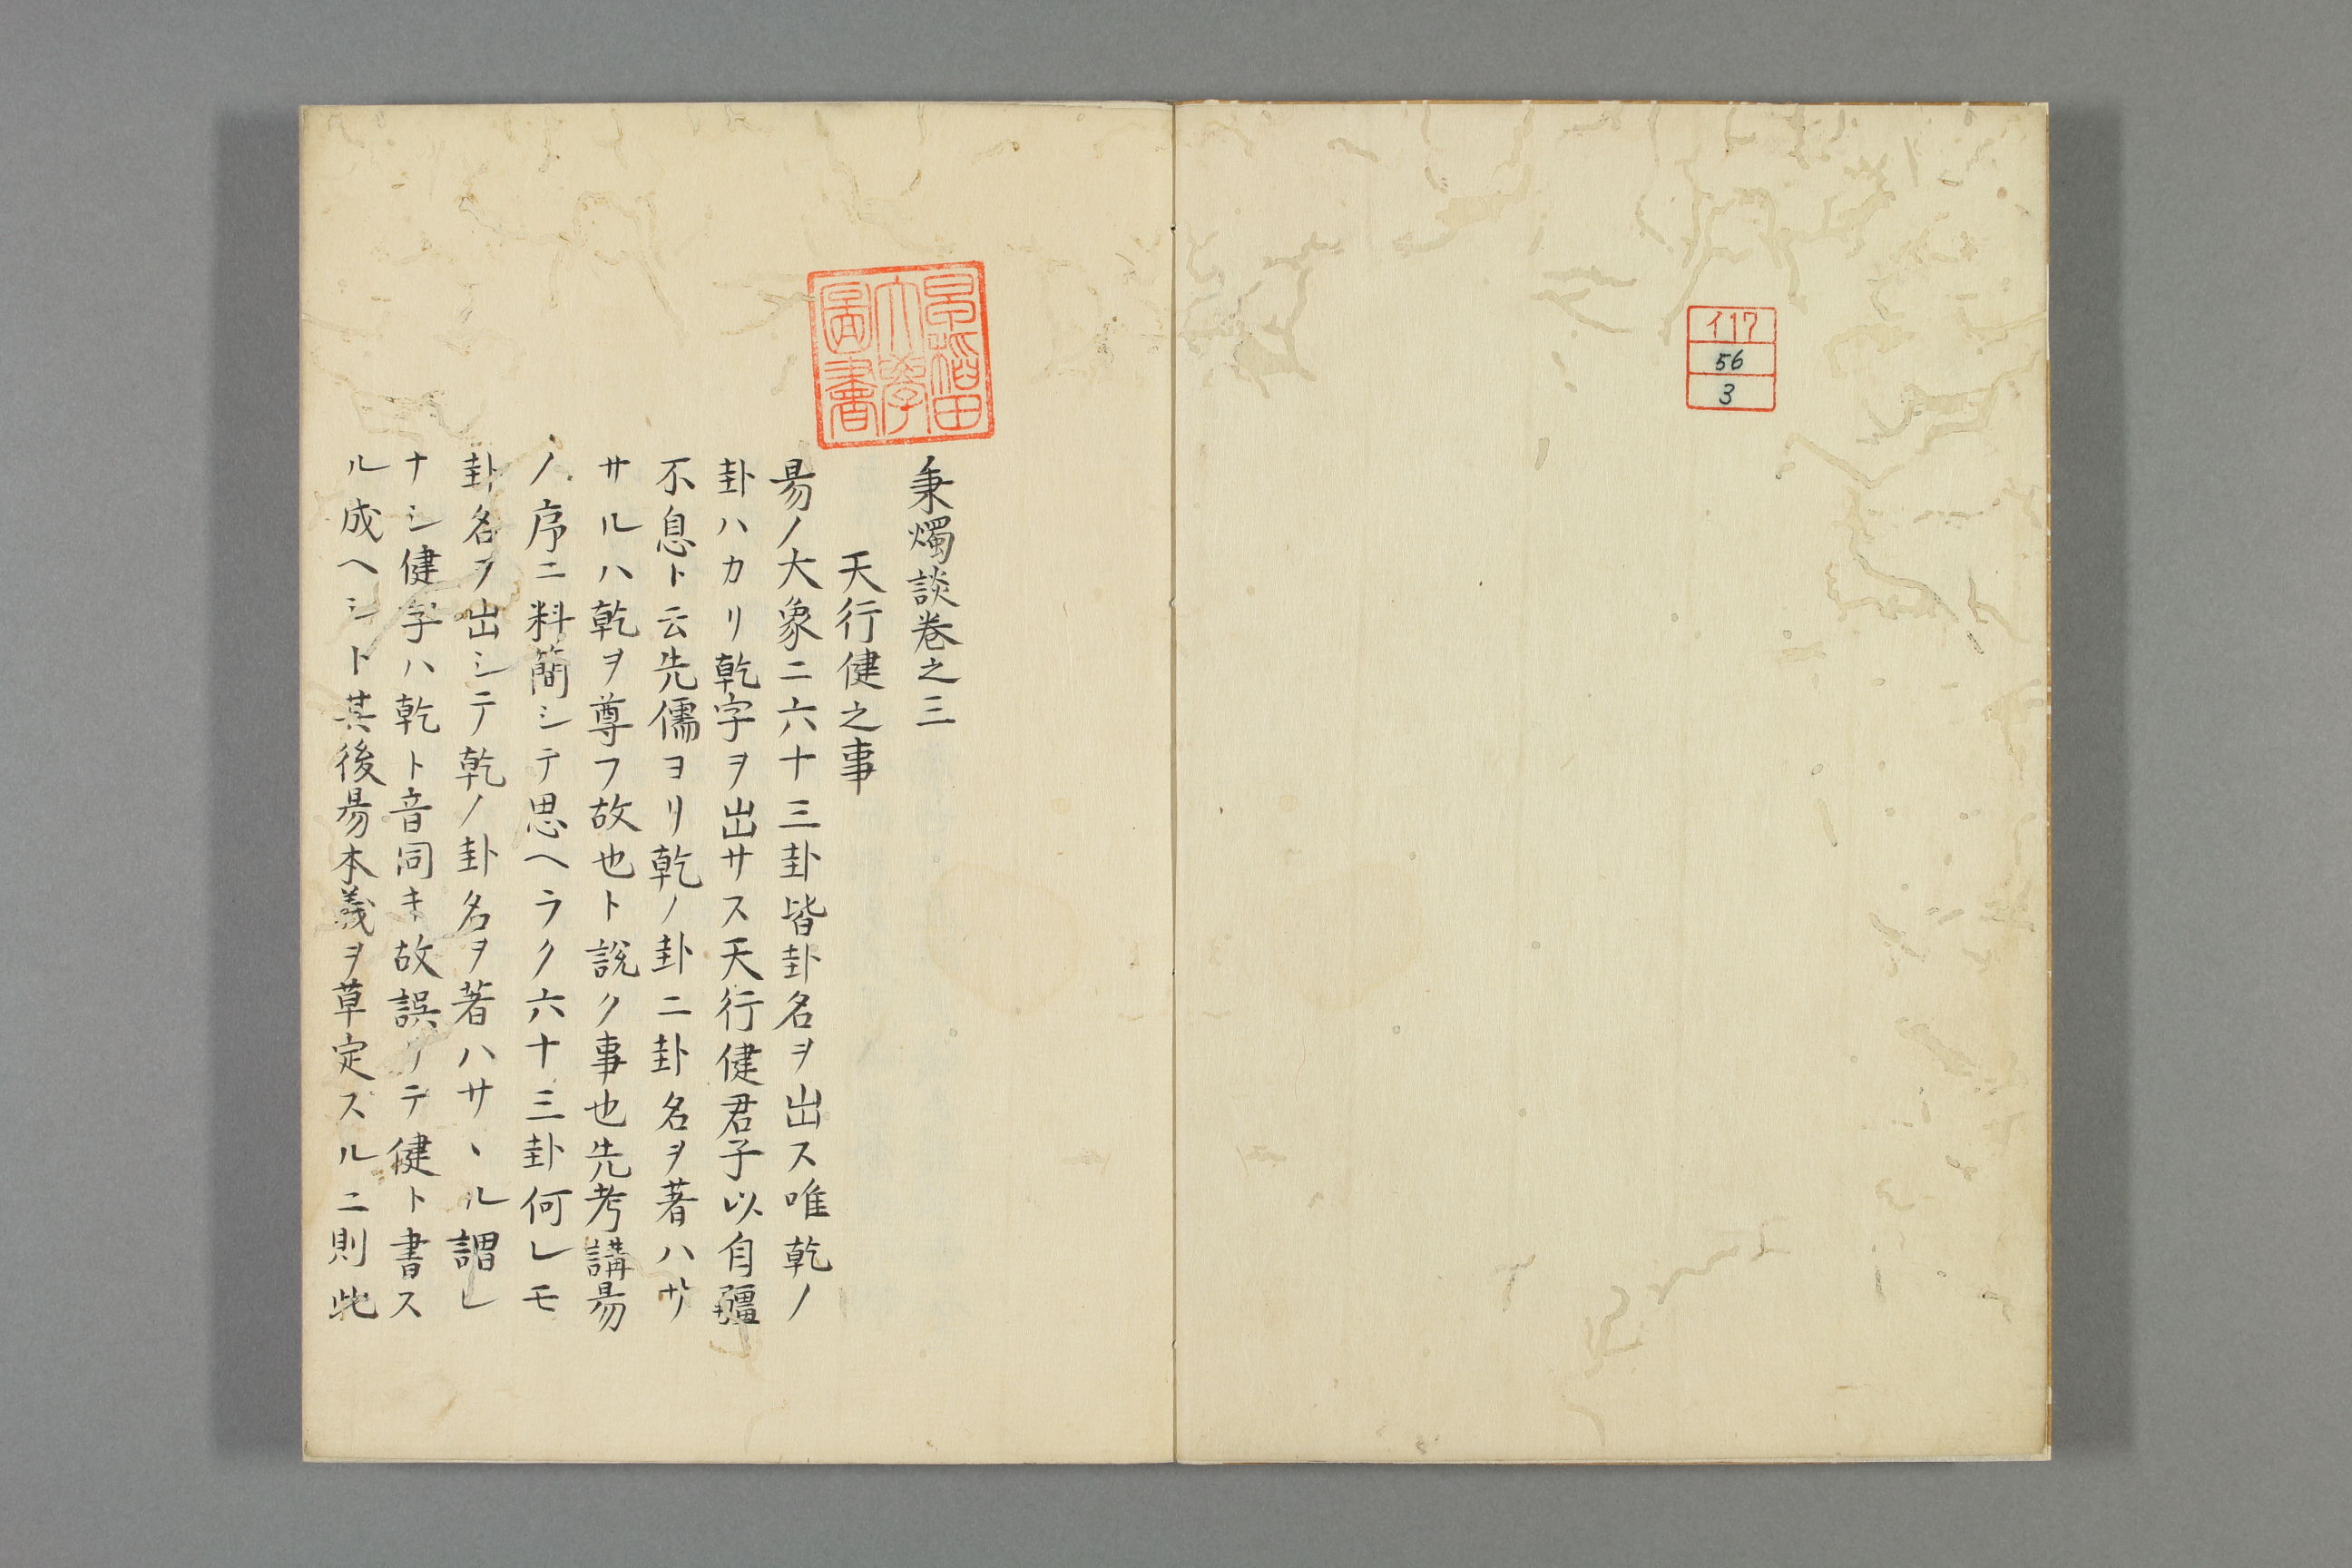 イ17
56
3
早稲田
大學
圖書
秉燭談巻之三
天行健之事
易ノ大象ニ六十三卦皆卦名ヲ出ス唯乾ノ
卦ハカリ乾字ヲ出サス天行健君子以自彊
不息ト云先儒ヨリ乾ノ卦ニ卦名ヲ著ハサ
サルハ乾ヲ尊フ故也ト説ク事也先考講易
ノ序ニ料簡シテ思ヘラク六十三卦何レモ
卦名ヲ出シテ乾ノ卦名ヲ著ハサヽル謂レ
ナシ健字ハ乾ト音同キ故誤リテ健ト書ス
ル成ヘシト其後易本義ヲ草定スルニ則此